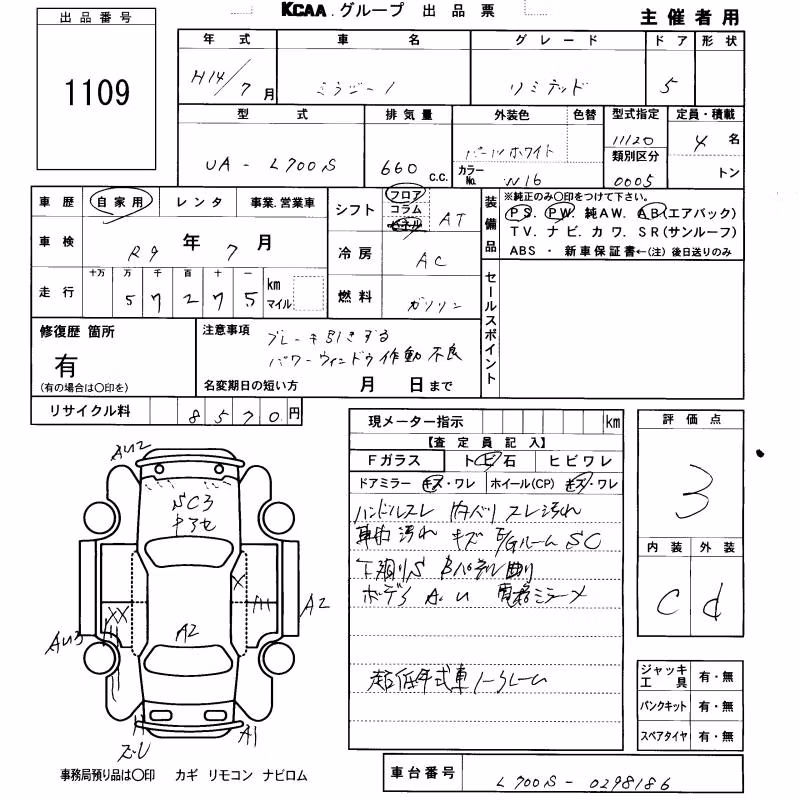 KCAA.グループ 出品票
主催者用
出品番号
1109
年式 車名 グレード ドア 形状
H14/7月 ミラジーノ リミテッド 5
型式 排気量 外装色 色替 型式指定 定員・積載
UA-L700S 660 c.c. パールホワイト 11120 4名
カラーNo. W16 類別区分 0005 トン
車歴 自家用 レンタ 事業.営業車
車検 R9年 7月
走行 十万 万 千 百 十 一 km マイル
5 7 2 7 5
シフト フロア コラム AT
冷房 AC
燃料 ガソリン
装備品
※純正のみ○印をつけて下さい。
PS. PW. 純AW. AB(エアバック)
TV. ナビ. カワ. SR(サンルーフ)
ABS ・ 新車保証書←(注)後日送りのみ
セールスポイント
修復歴 箇所
有
(有の場合は○印を)
注意事項
ブレーキ引きずる
パワーウィンドウ作動不良
名変期日の短い方 月 日まで
リサイクル料 8570円
現メーター指示 km
【査定員記入】
Fガラス ト石 ヒビワレ
ドアミラー キズ・ワレ ホイール(CP) キズ・ワレ
ハンドルスレ 内ハリ スレ汚れ
車内汚れ キズ E/Gルーム SC
下廻りS Bパネル曲り
ボデー A.U 電格ミラー×
超低年式車ノークレーム
評価点
3
内装 外装
C d
ジャッキ工具 有・無
パンクキット 有・無
スペアタイヤ 有・無
AU2
SC3
X
XX
A2
A2
AU3
A1
事務局預り品は○印 カギ リモコン ナビロム
車台番号 L700S-0298186